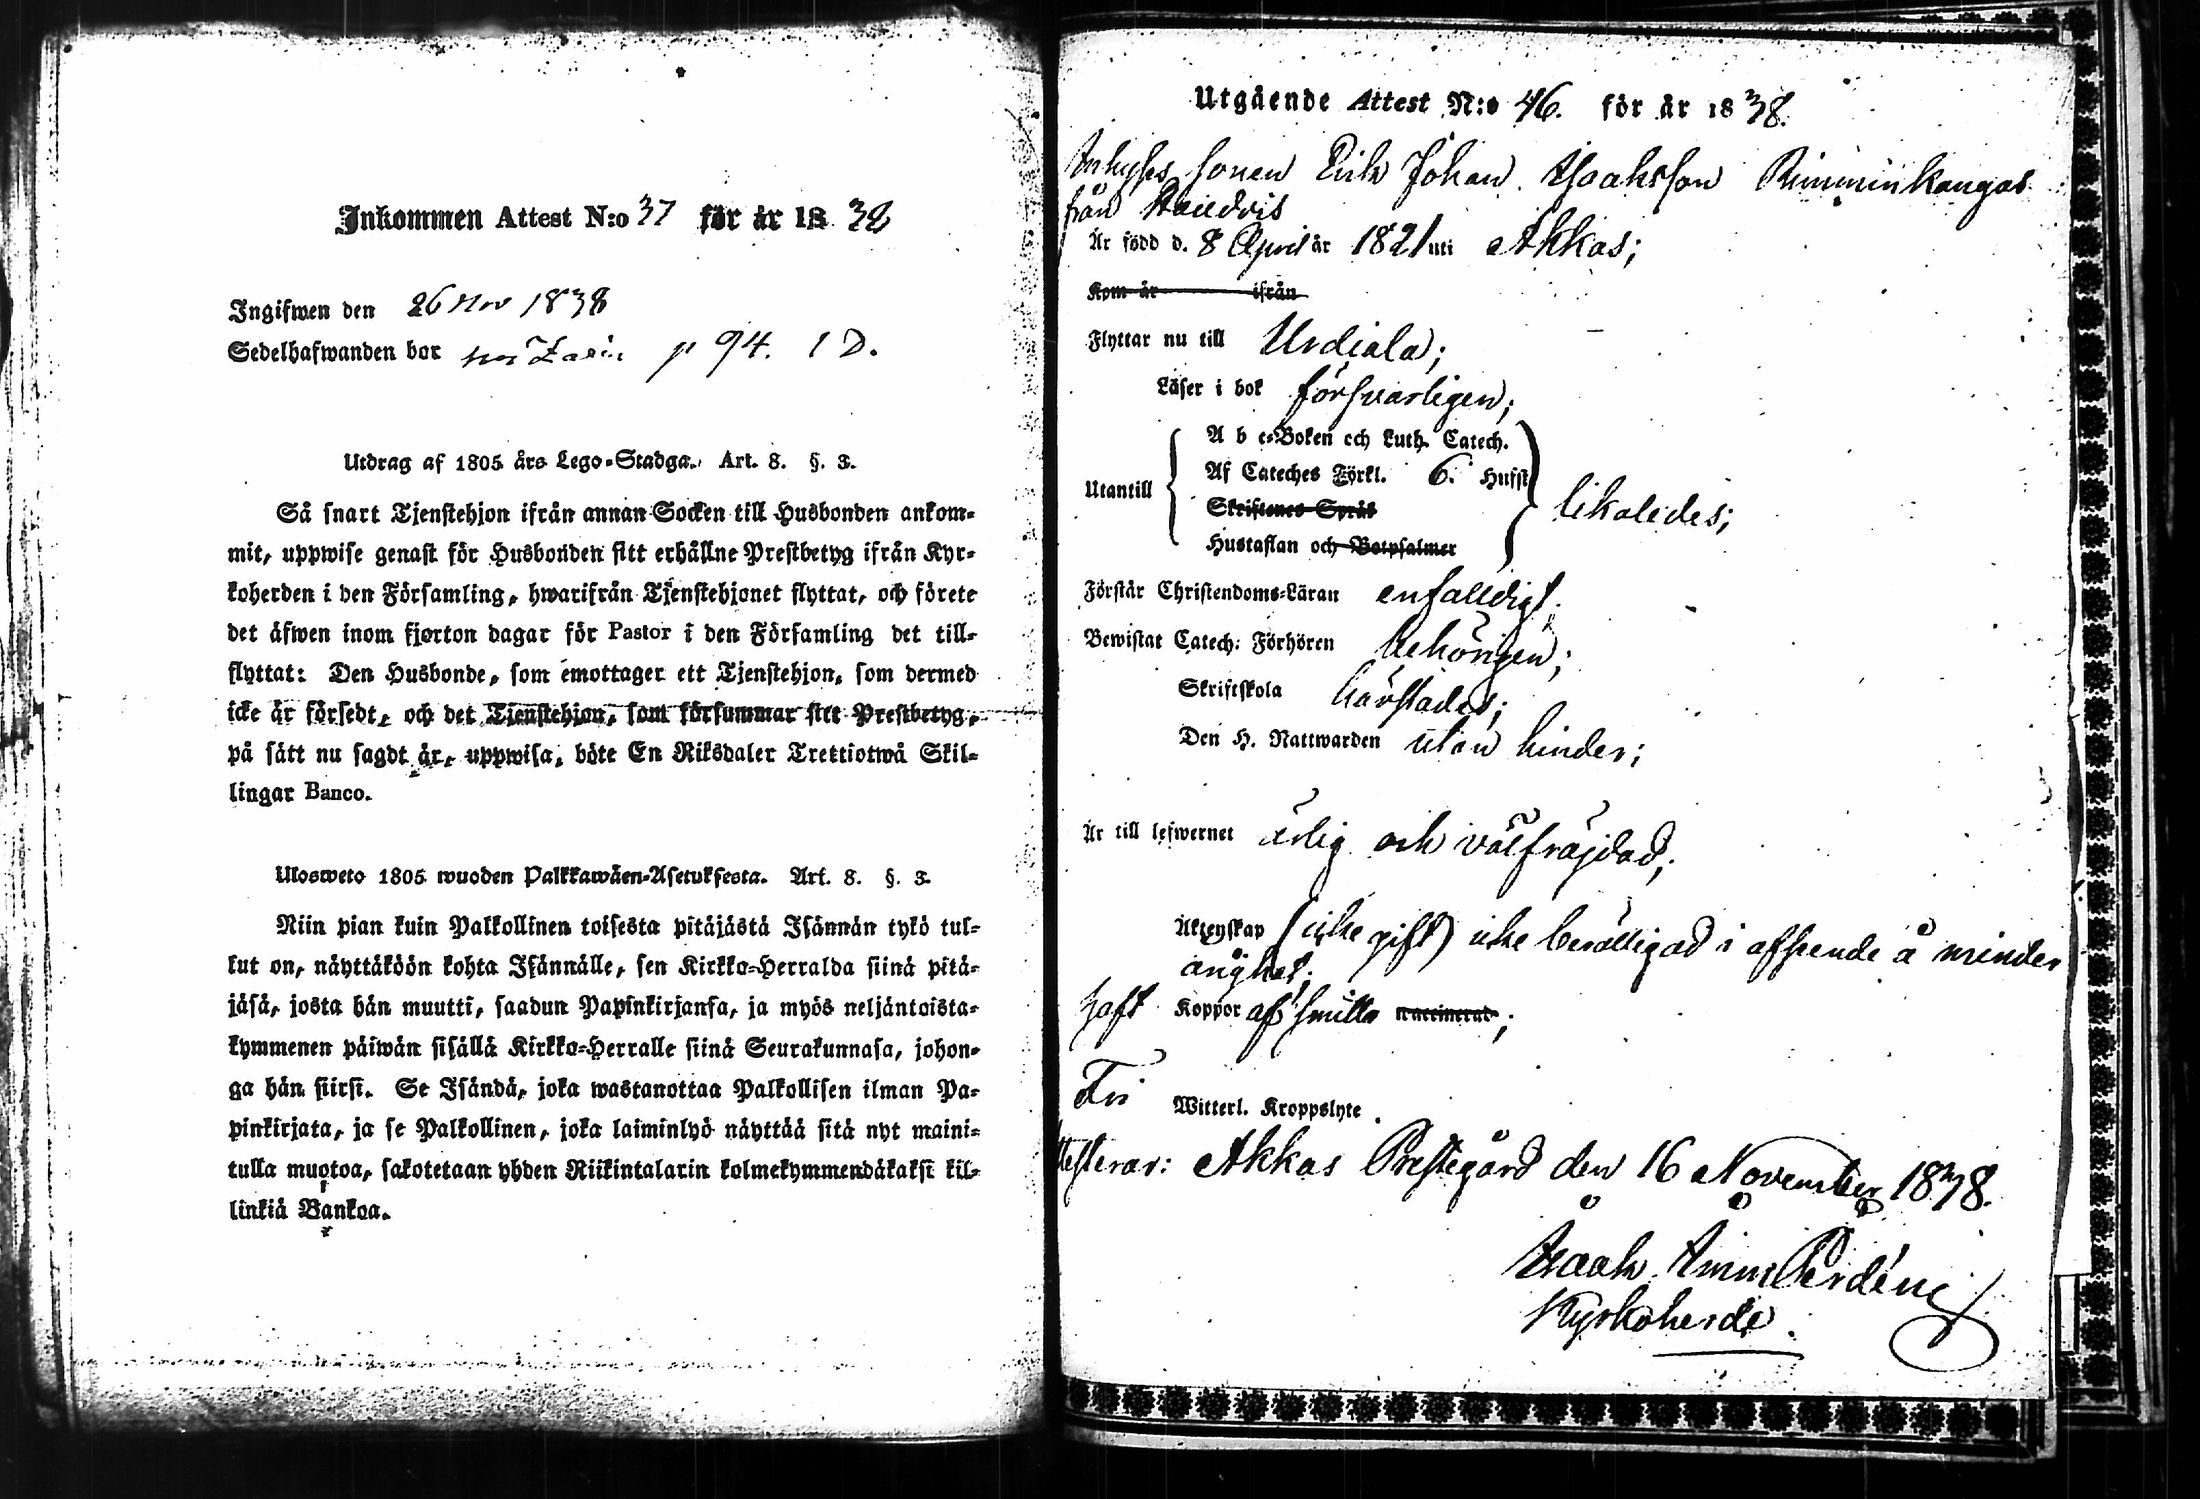 Inkommen Attest N:o 37 för år 1838
Ingifwen den 26 Nov 1838
Sedelhafwanden bor p 94. 1 D.
Utdrag af 1805 års Lego-Stadga. Art. 8. §. 3.
Så snart Tjenstehjon ifrån annan Socken till Husbonden ankom-
mit, uppwise genast för Husbonden sitt erhållne Prestbetyg ifrån Kyr-
koherden i den Församling, hwarifrån Tjenstehjonet flyttat, och förete
det äfwen inom fjorton dagar för Pastor i den Församling det till-
flyttat: Den Husbonde, som emottager ett Tjenstehjon, som dermed
icke är försedt, och det Tjenstehjon, som försummar sitt Prestbetyg,
på sätt nu sagdt är, uppwisa, böte En Riksdaler Trettiotwå Skil-
lingar Banco.
Ulosweto 1805 wuoden Palkkawäen-Asetuksesta. Art. 8. §. 3.
Niin pian kuin Palkollinen toisesta pitäjästä Isännän tykö tul-
lut on, näyttäköön kohta Isännälle, sen Kirkko-Herralda siinä pitä-
jäsä, josta hän muutti, saadun Papinkirjansa, ja myös neljäntoista-
kymmenen päiwän sisällä Kirkko-Herralle siinä Seurakunnasa, johon-
ga hän siirsi. Se Isändä, joka wastanottaa Palkollisen ilman Pa-
pinkirjata, ja se Palkollinen, joka laiminlyö näyttää sitä nyt maini-
tulla muotoa, sakotetaan yhden Riikintalarin kolmekymmendäkaksi kil-
linkiä Bankoa.
Utgående Attest N:o 46. för år 1838.
Inhyses sonen Erik Johan Isaaksson Rimminkangas
från
Är född d. 8 April år 1821 uti Akkas;
Kom år ifrån
Flyttar nu till Urdiala;
Läser i bok försvarligen;
A b c-Boken och Luth. Catech.
Af Cateches Förkl. 6. Hufst
Utantill likaledes;
Skriftenes Språk
Hustaflan och Botpsalmer
Förstår Christendoms-Läran enfaldigt;
Bewistat Catech: Förhören behörigen;
Skriftskola härstädes;
Den H. Nattwarden utan hinder;
Är till lefwernet ärlig och välfräjdad;
Äktenskap (icke gift) icke berättigad i afseende å minder
årighet;
haft Koppor af smitta vaccinerad;
Fri Witterl. Kroppslyte.
Attesterar: Akkas Prestegård den 16 November 1838.
Isaak
Kyrkoherde.